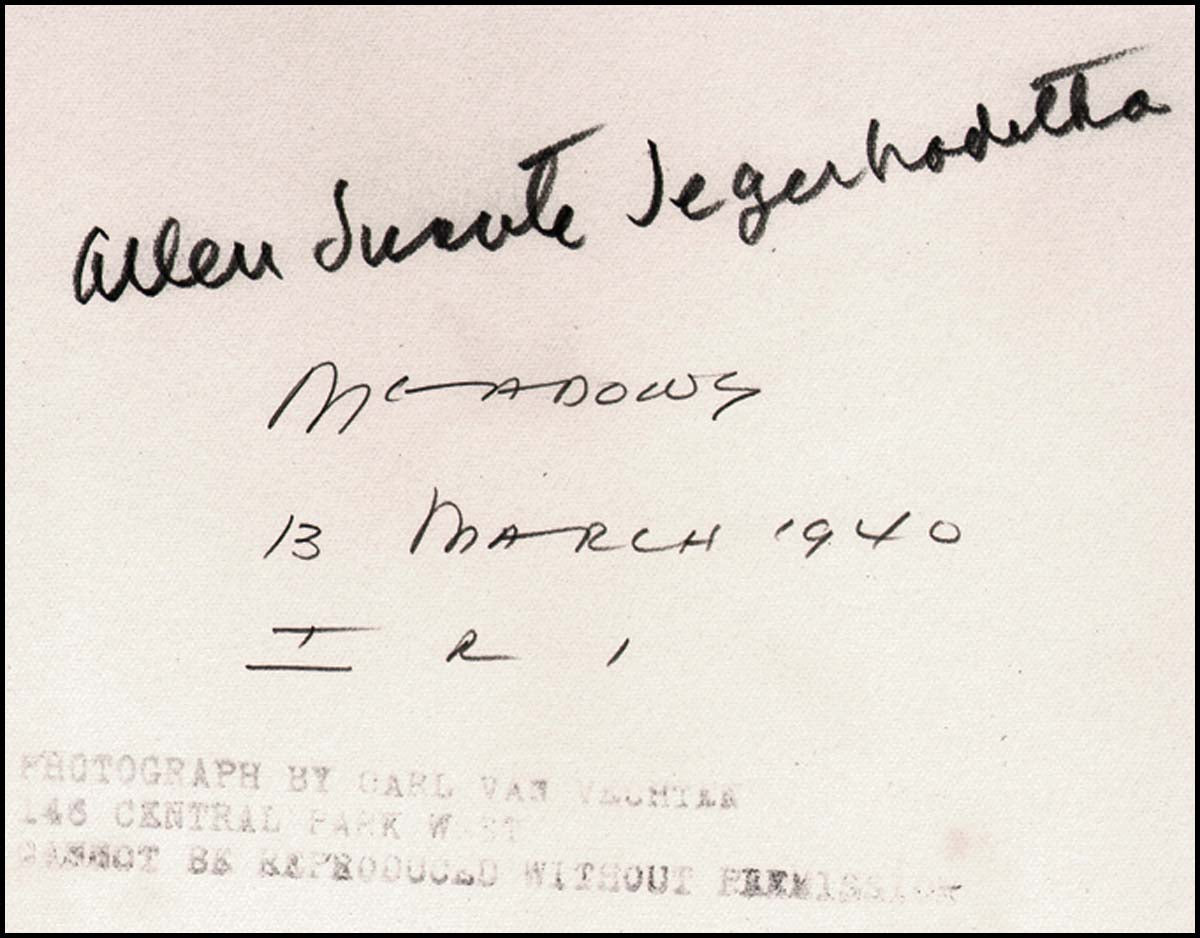 Allen Juante
MEADOWS
13 MARCH 1940
I R 1
PHOTOGRAPH BY CARL VAN VECHTEN
146 CENTRAL PARK WEST
CANNOT BE REPRODUCED WITHOUT PERMISSION